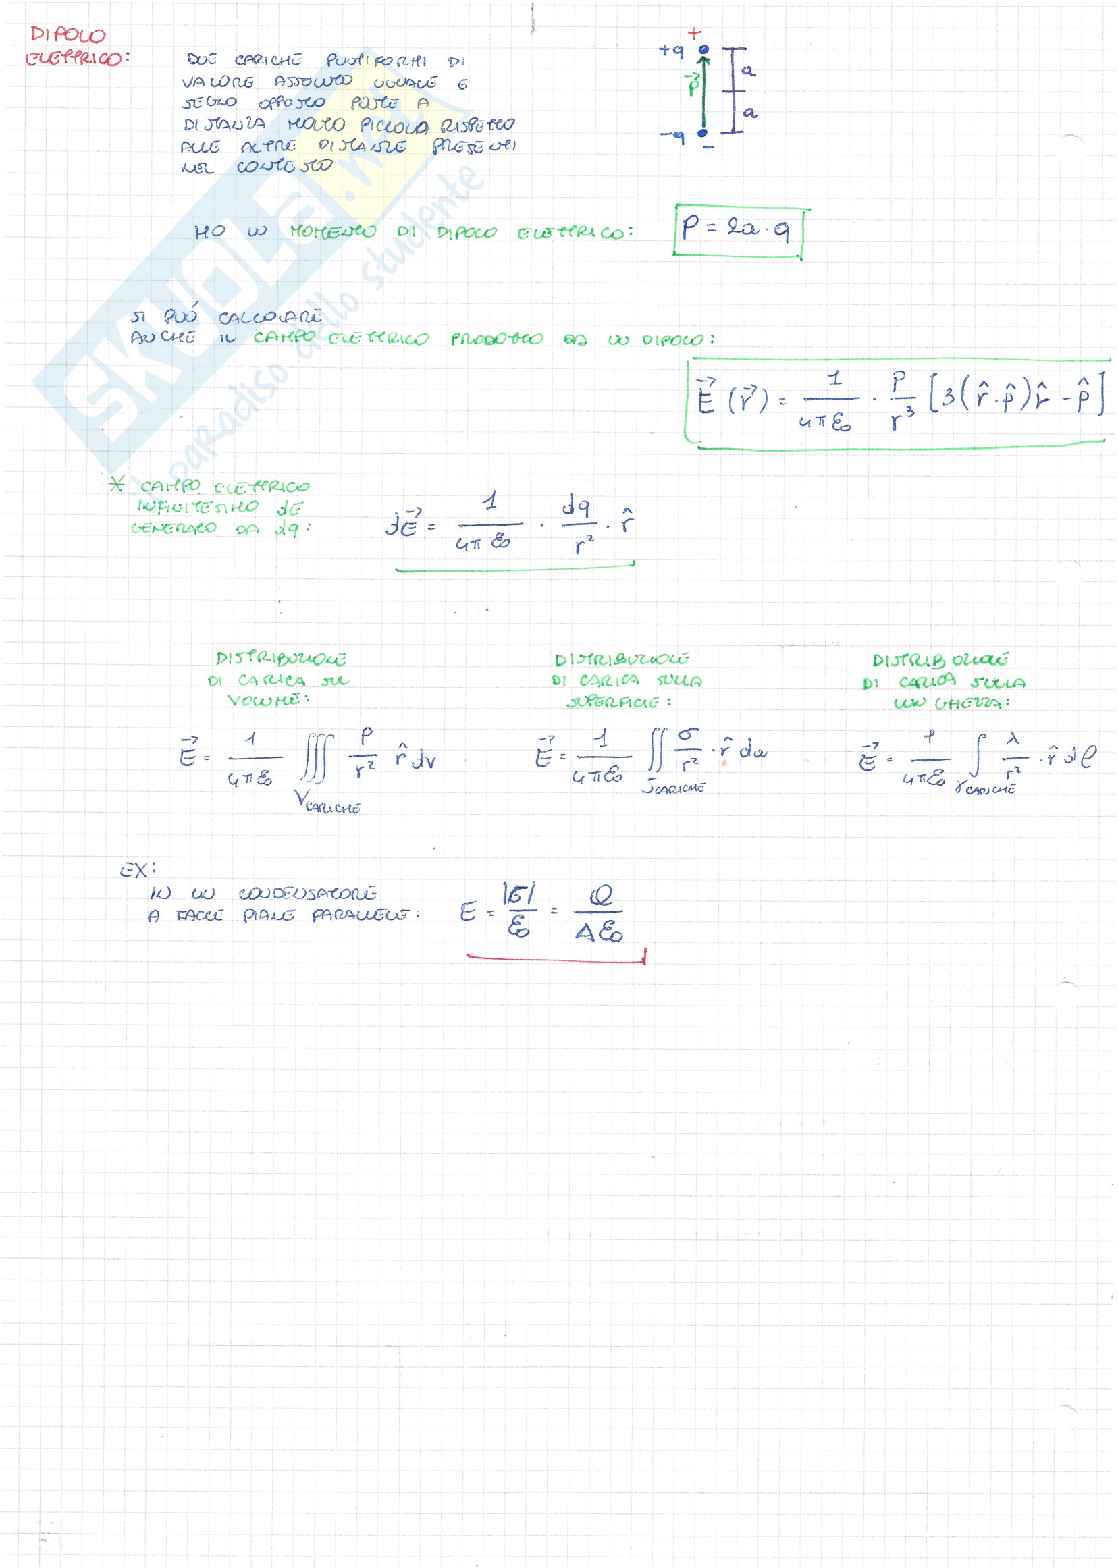 DIPOLO
ELETTRICO:
DUE CARICHE PUNTIFORMI DI
VALORE ASSOLUTO UGUALE E
SEGNO OPPOSTO POSTE A
DISTANZA MOLTO PICCOLA RISPETTO
ALLE ALTRE DISTANZE PRESENTI
NEL CONTESTO
+
+q
a
p⃗
a
-q
-
HO UN MOMENTO DI DIPOLO ELETTRICO: P = 2a · q
SI PUÓ CALCOLARE
ANCHE IL CAMPO ELETTRICO PRODOTTO DA UN DIPOLO:
E⃗ (r⃗) = 1/4πε₀ · P/r³ [3(r̂·p̂)r̂ - p̂]
* CAMPO ELETTRICO
INFINITESIMO dE
GENERATO DA dq:
dE⃗ = 1/4πε₀ · dq/r² · r̂
DISTRIBUZIONE
DI CARICA SUL
VOLUME:
E⃗ = 1/4πε₀ ∭ ρ/r² r̂ dv
V CARICHE
DISTRIBUZIONE
DI CARICA SULLA
SUPERFICIE:
E⃗ = 1/4πε₀ ∬ σ/r² · r̂ da
S CARICHE
DISTRIBUZIONE
DI CARICA SULLA
LUNGHEZZA:
E⃗ = 1/4πε₀ ∫ λ/r² · r̂ dl
γ CARICHE
EX:
IN UN CONDENSATORE
A FACCE PIANE PARALLELE: E = |σ|/ε₀ = Q/Aε₀
SKUOLA.net
il paradiso dello studente